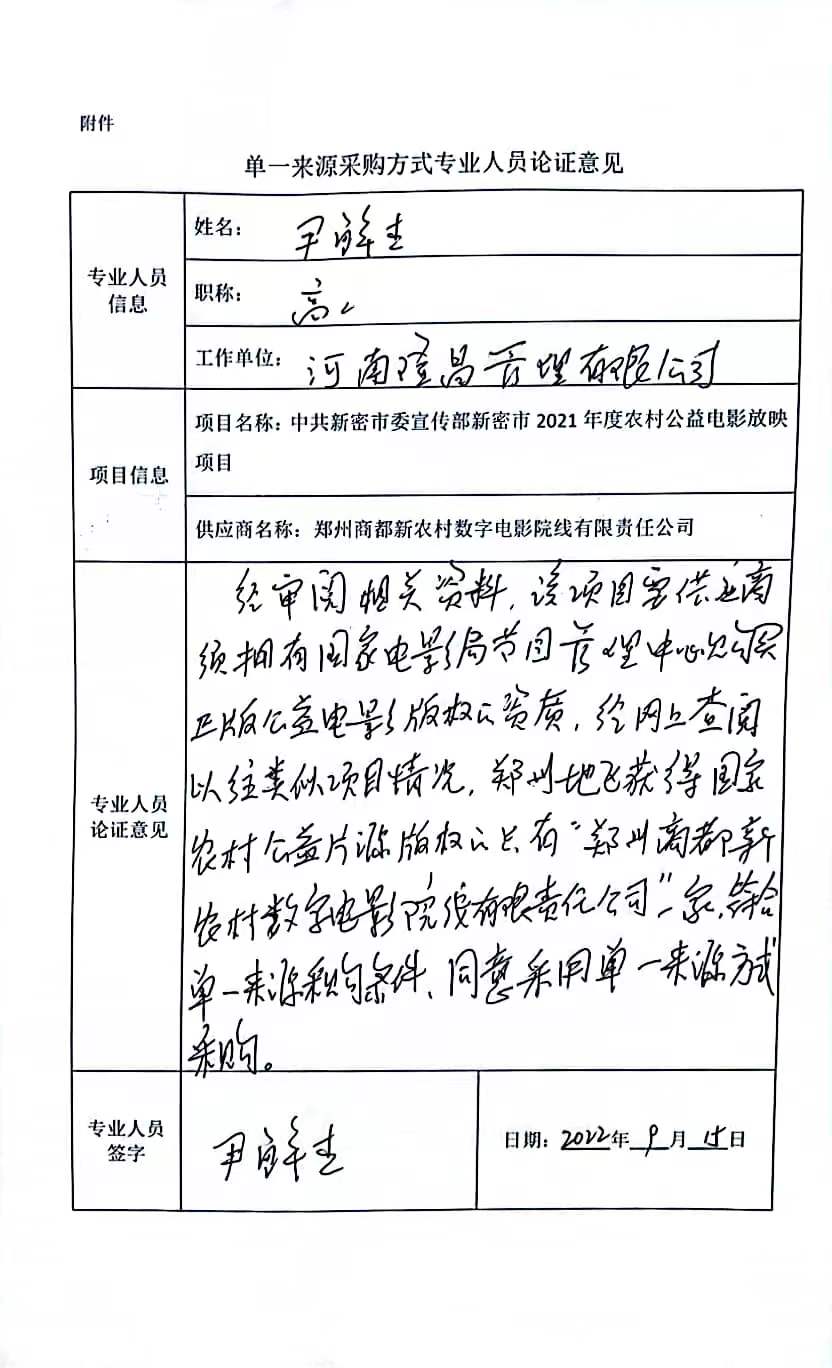 附件
单一来源采购方式专业人员论证意见
专业人员
信息
姓名： 尹
职称： 高工
工作单位： 河南隆昌管理有限公司
项目信息
项目名称：中共新密市委宣传部新密市 2021 年度农村公益电影放映
项目
供应商名称：郑州商都新农村数字电影院线有限责任公司
专业人员
论证意见
经审阅相关资料，该项目要供应商
须拥有国家电影局节目管理中心购买
正版公益电影版权的资质，经网上查阅
以往类似项目情况，郑州地区获得国家
农村公益片源版权的只有“郑州商都新
农村数字电影院线有限责任公司”一家，符合
单一来源采购条件、同意采用单一来源方式
采购。
专业人员
签字
尹
日期：2022年 9 月 15日